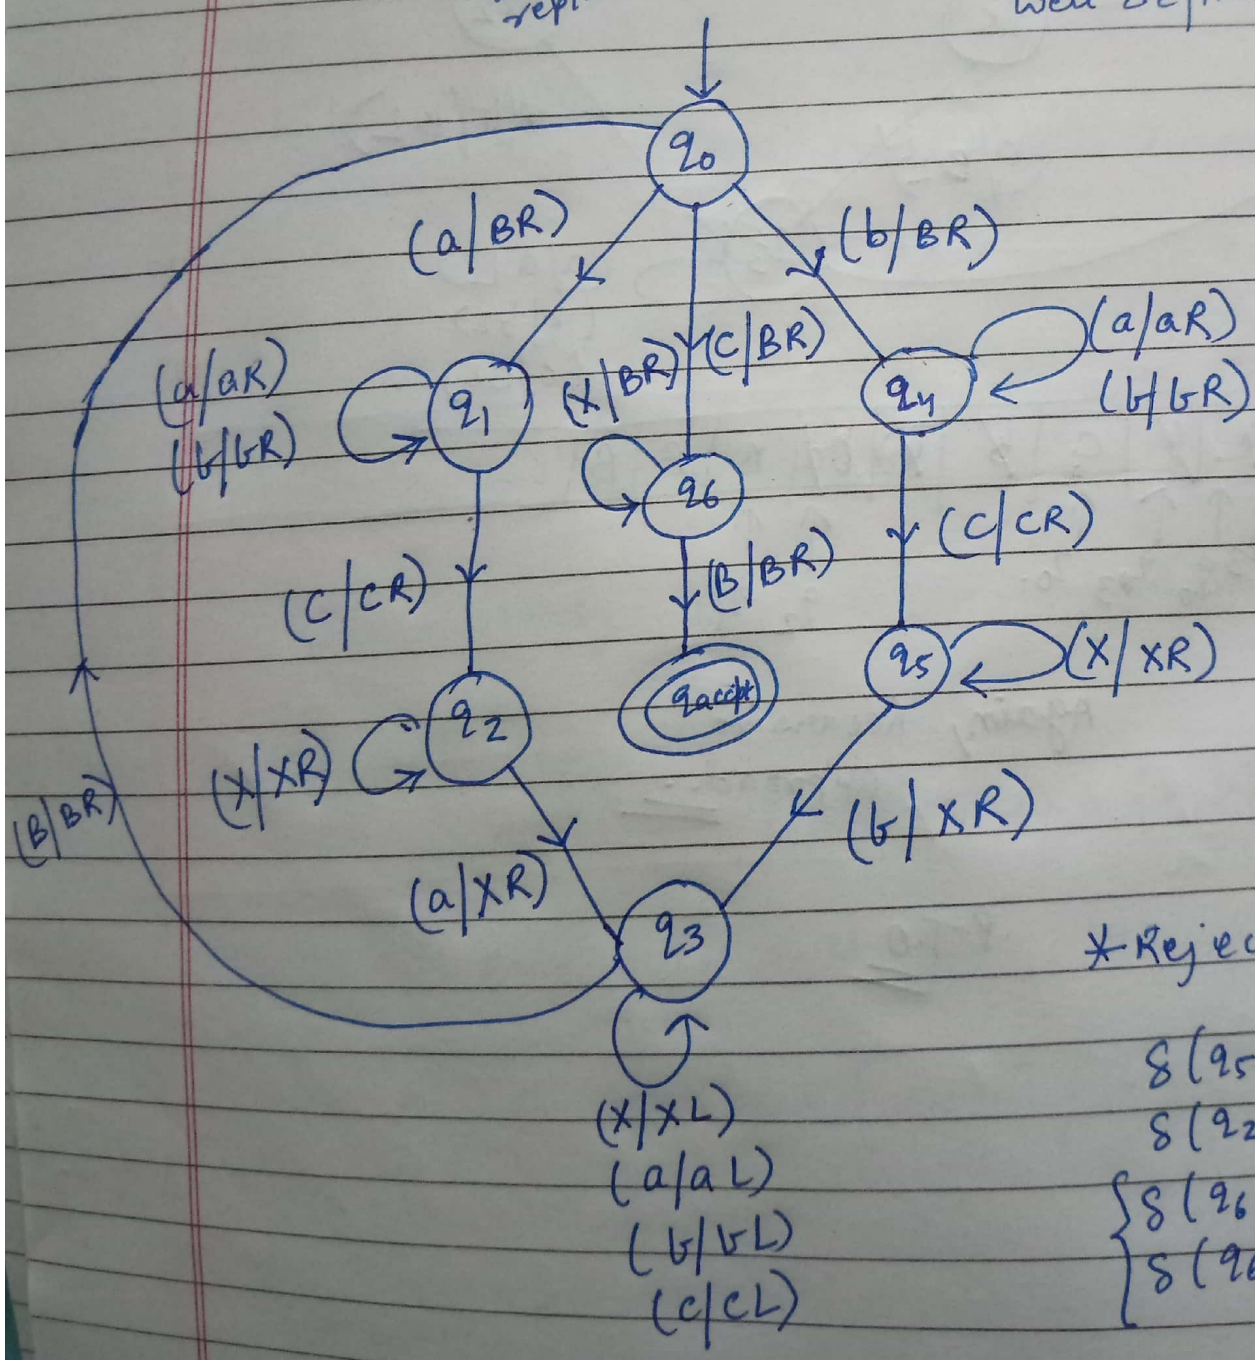 q0
(a/BR)
(b/BR)
(a/aR)
(b/bR)
q1
(X/BR)
(C/BR)
q4
(a/aR)
(b/bR)
q6
(C/CR)
(B/BR)
(C/CR)
q2
qaccept
q5
(X/XR)
(X/XR)
(B/BR)
(a/XR)
(b/XR)
q3
(X/XL)
(a/aL)
(b/bL)
(c/cL)
δ(q5
δ(q2
δ(q6